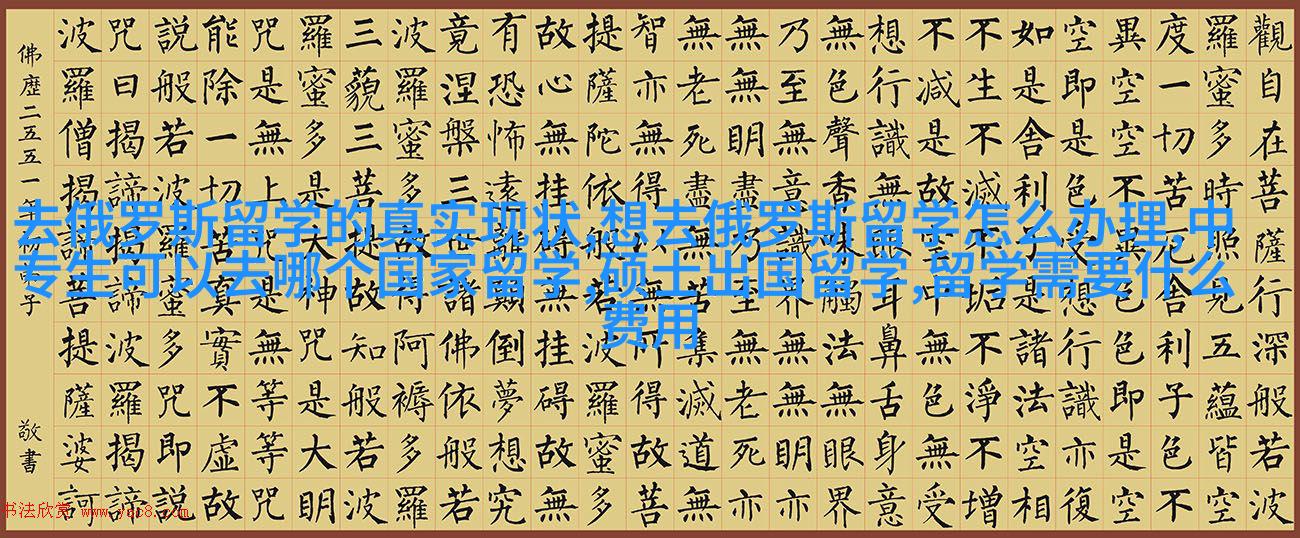 觀自在菩薩行深般若波
羅蜜多時照見五蘊皆空
度一切苦厄舍利子色不
異空空不異色色即是空
空即是色受想行識亦復
如是舍利子是諸法空相
不生不滅不垢不淨不增
不減是故空中無色無受
想行識無眼耳鼻舌身意
無色聲香味觸法無眼界
乃至無意識界無無明亦
無無明盡乃至無老死亦
無老死盡無苦集滅道無
智亦無得以無所得故菩
提薩陀依般若波羅蜜多
故心無挂礙無挂礙故無
有恐怖遠離顛倒夢想究
竟涅槃三世諸佛依般若
波羅蜜多故得阿褥多羅
三藐三菩提故知般若波
羅蜜多是大神咒是大明
咒是無上咒是無等等咒
能除一切苦真實不虛故
說般若波羅蜜多咒即說
咒曰揭諦揭諦波羅揭諦
波羅僧揭諦菩提薩婆訶
佛歷二五五一年 子 敬書
去俄罗斯留学的真实现状,想去俄罗斯留学怎么办理,中
专生可以去哪个国家留学,硕士出国留学,留学需要什么
费用
书法欣赏 www.yac8.com